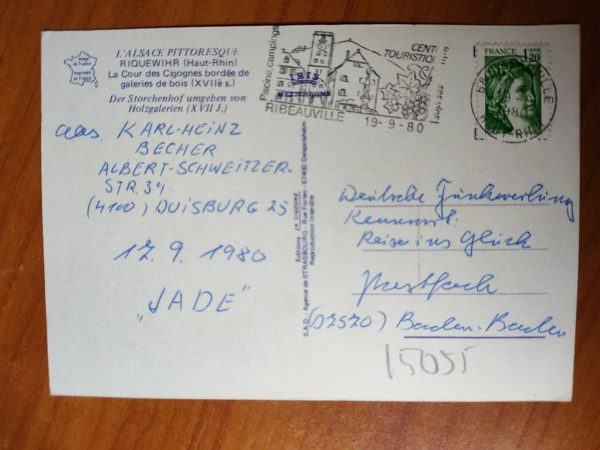 L'ALSACE PITTORESQUE
RIQUEWIHR (Haut-Rhin)
La Cour des Cigognes bordée de
galeries de bois (XVIIè s.)
Der Storchenhof umgeben von
Holzgalerien (XVII J.)
KARL-HEINZ
BECHER
ALBERT-SCHWEITZER-
STR. 34
(4100) DUISBURG 25
17.9.1980
"JADE"
Editions
S.A.D. - Agence de STRASBOURG - Rue Forlen - 67400 Geispolsheim
Reproduction interdite
Piscine, campings
IRIS
MEXICHROME
RIBEAUVILLE
CENT
TOURISTIQ
19-9-80
FRANCE
1,20
Deutsche Funkwerbung
Kennwort:
Reise ins Glück
Postfach
Baden-Baden
15055